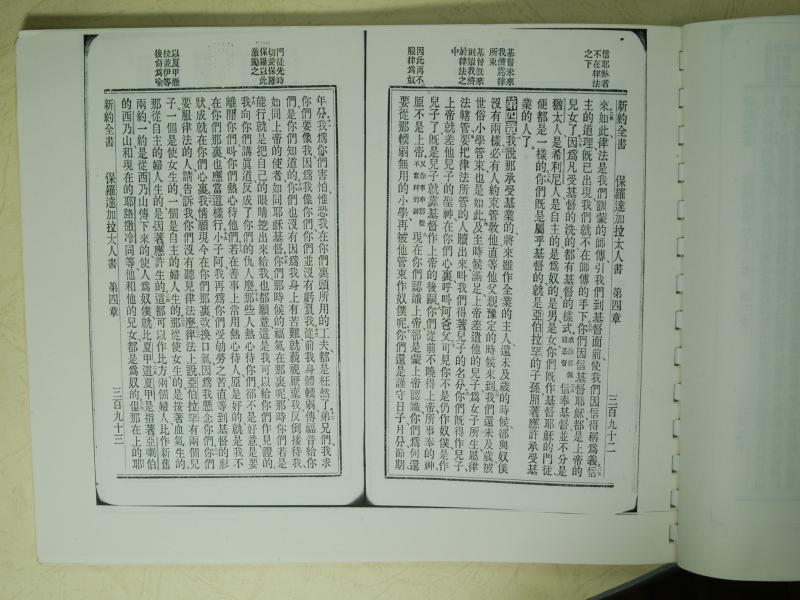 信耶穌者
不在律法
之下
基督未來
我儕爲律
所束
基督旣來
則贖我儕
於律法之
中
因此再不
服律爲奴
新約全書 保羅達加拉太人書 第四章 三百九十二
來、如此律法是我們訓蒙的師傅引我們到基督面前使我們因信得稱爲義信
主的道理旣已出現我們就不在師傅的手下你們因信基督耶穌都是上帝的
兒女了因爲凡受基督的洗的都有基督的樣式信奉基督並不分是
猶太人是希利尼人是自主的是爲奴的是男是女你們旣作基督耶穌的門徒
便都是一樣的你們旣是屬乎基督的就是亞伯拉罕的子孫照著應許承受基
業的人了
第四章我說那承受基業的將來雖作全業的主人還未及歲的時候卻與奴僕
沒有兩樣必有人約束管敎他直等他父親豫定的時候來到我們還未及歲被
世俗小學管束也是如此及至時候滿足上帝差遣他的兒子爲女子所生屬律
法轄管要把律法所管的人贖出來呌我們得著兒子的名分你們旣得作兒子
上帝就差他兒子的聖神在你們心裏呼呌阿爸父可見你不是仍作奴僕是作
兒子了旣是兒子就靠基督作上帝的後嗣你們從前不曉得上帝所事奉的神
原不是上帝現在你們認識上帝卻是蒙上帝認識你們爲何還
要從那輭弱無用的小學再被他管束作奴僕呢你們還是謹守日子月分節期
門徒先時
切愛保羅
保羅以此
激勵之
以夏甲撒
拉並伊等
後裔爲喻
年分我爲你們害怕惟恐我在你們裏頭所用的工夫都是枉然了弟兄們我求
你們要像我因爲我像你們你們並沒有虧負我從前我身體輭弱傳福音給你
們是你們知道的你們也沒有因爲我身上有苦難就藐視厭棄我反倒接待我
如同上帝的使者如同耶穌基督你們那時候的福氣在那裏呢那時你們若是
能行就是把自己的眼睛挖出來給我也都願意這是我可以給你們作見證的
我向你們講眞道反成了你們的仇人麼那些人熱心待你們卻不是好意是要
離間你們呌你們熱心待他們若在善事上常用熱心待人原是好的就是我不
在你們那裏也應當這樣行小子阿我再爲你們受劬勞之苦直等到基督的形
狀成就在你們心裏我情願現今在你們那裏改換口氣因爲我懸念你們你們
要服律法的人請告訴我你們沒有聽見律法麼律法上說亞伯拉罕有兩個兒
子一個是使女生的一個是自主的婦人生的那從使女生的是接著血氣生的
那從自主的婦人生的是因著應許生的這都可以作比方兩個婦人比作新舊
兩約一約是從西乃山傳下來的使人爲奴僕就比夏甲這夏甲是指著亞喇伯
的西乃山和現在的耶路撒冷同等他和他的兒女都是爲奴的但那在上的耶
新約全書 保羅達加拉太人書 第四章 三百九十三